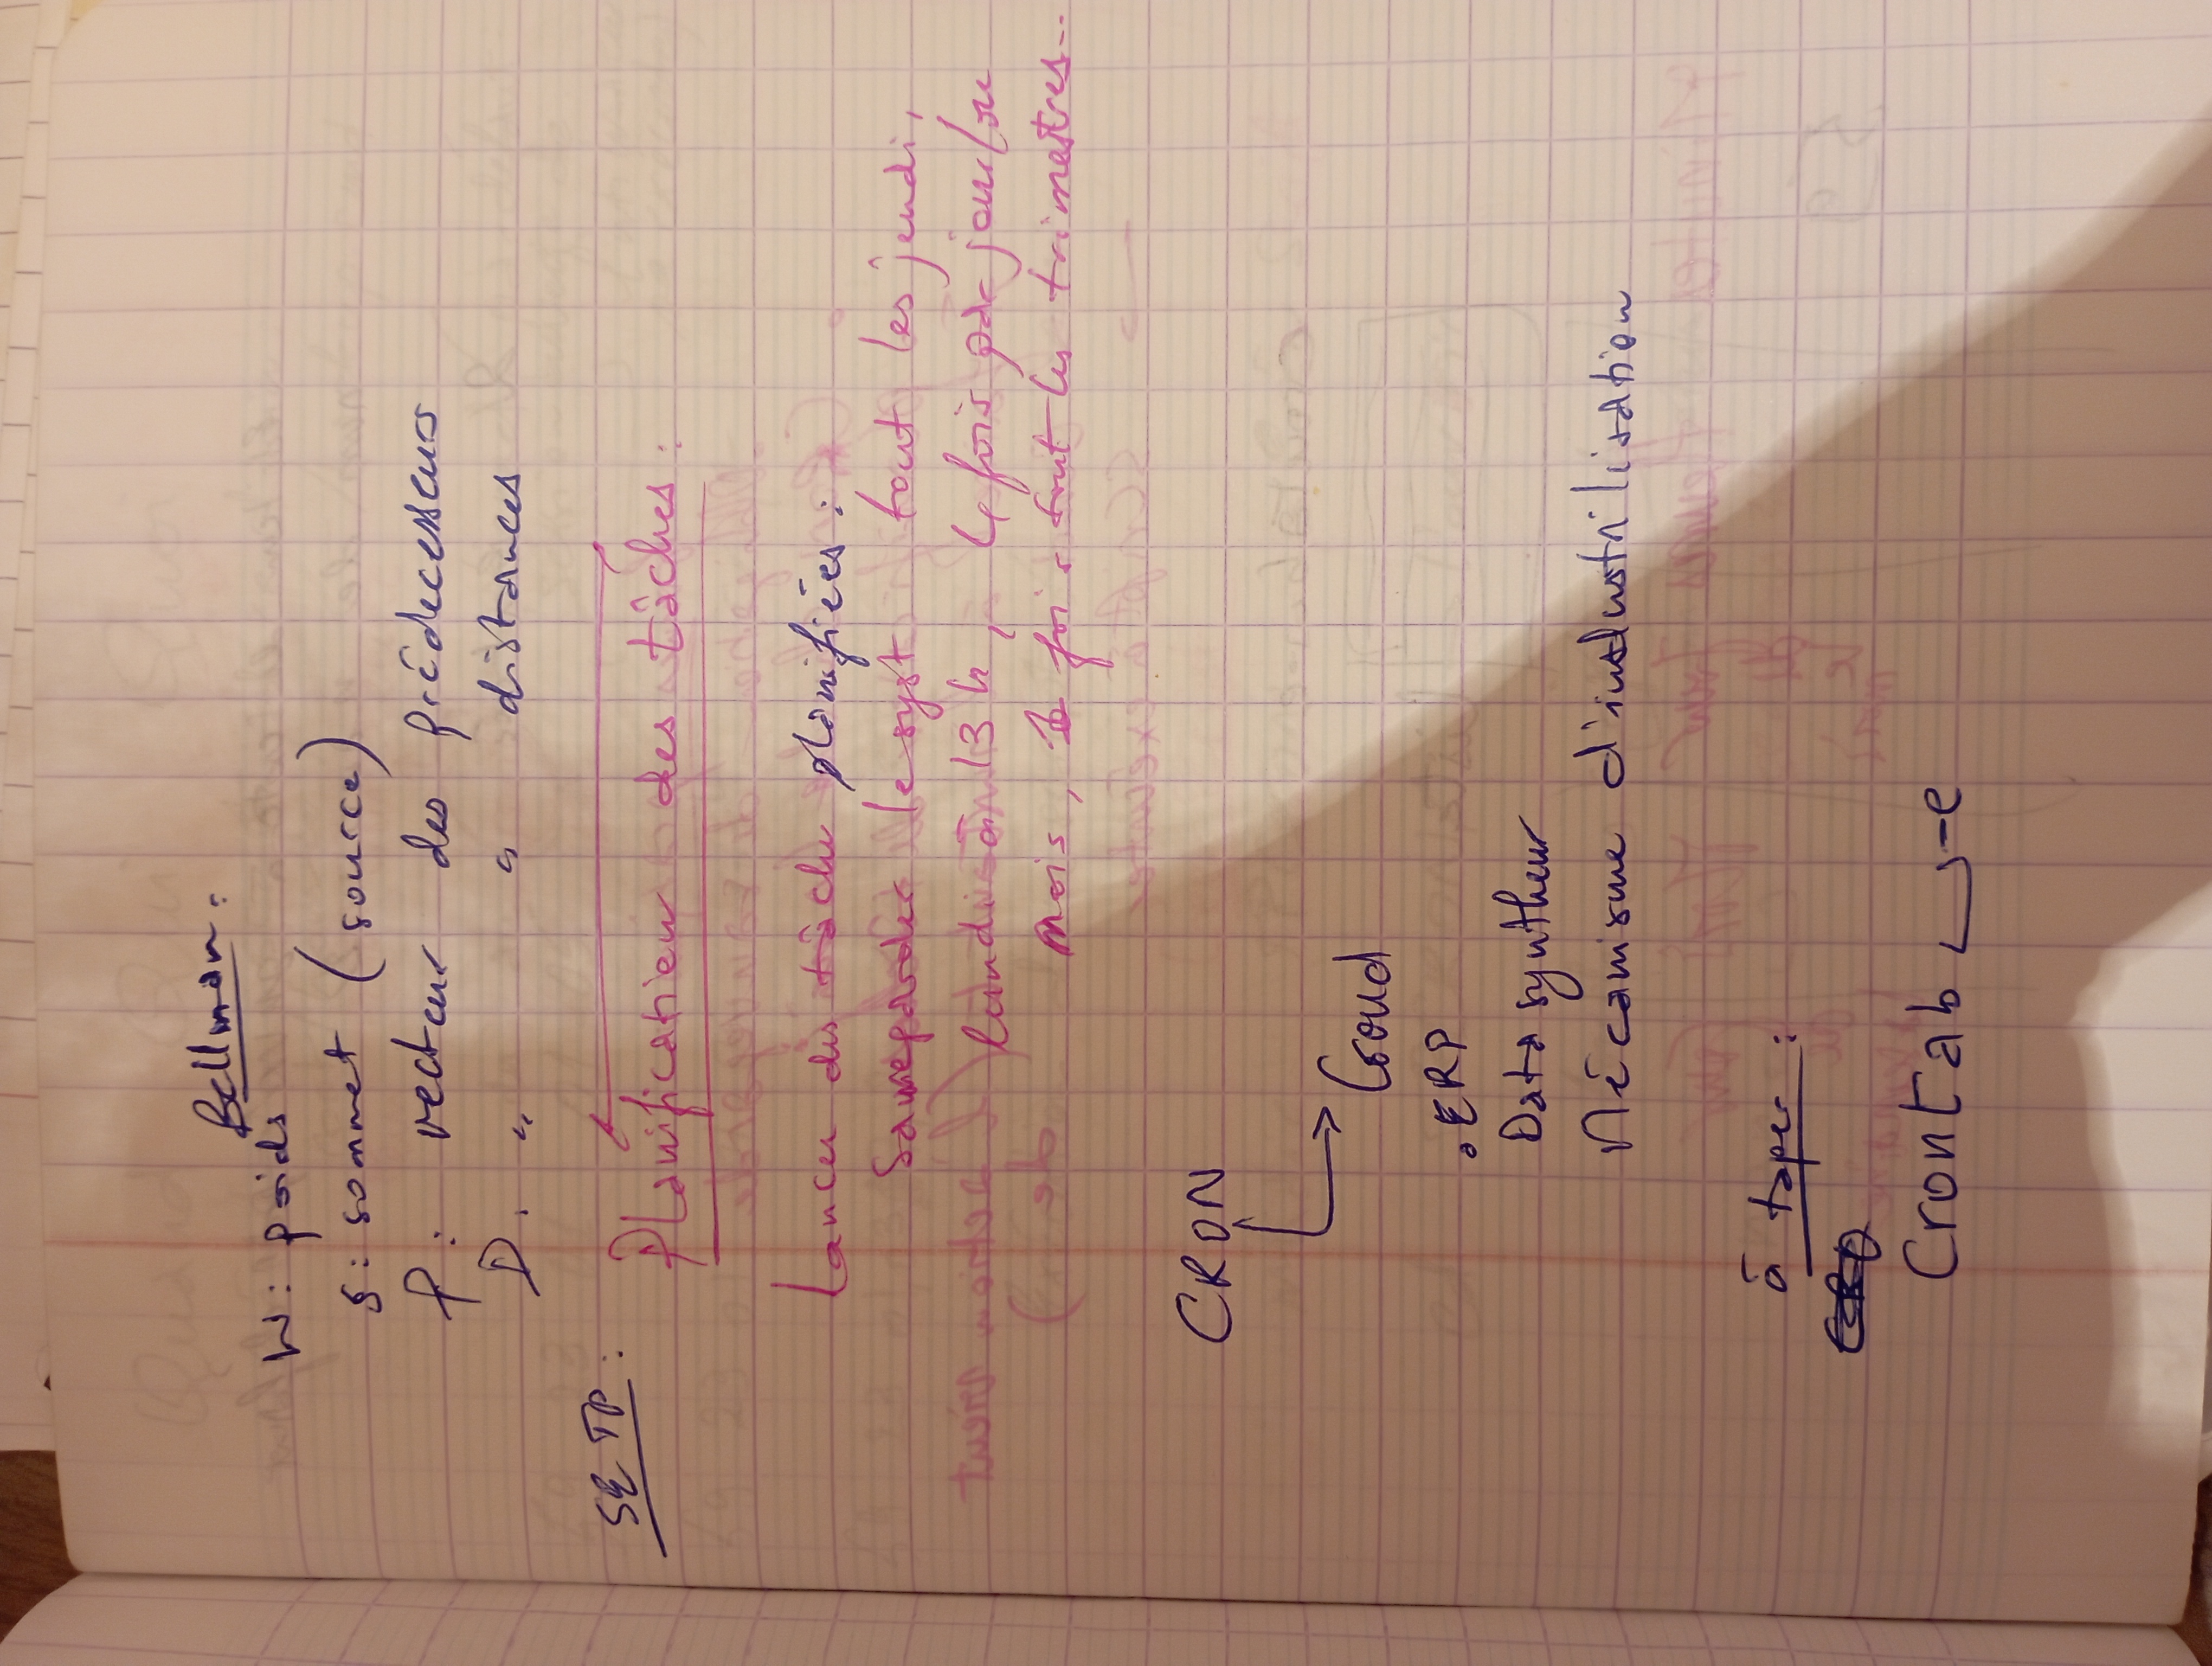 Bellman :
W : poids
s : sommet (source)
P : vecteur des prédecesseurs
D : " " distances
SE TP :
Planification des tâches :
Lancer des tâches planifiées :
le syst tout les jeudi,
lundi à 13 h, 1 fois par jour/se
mois, fois tout les trimestres--
CRON
Groud
. ERP
Data syntheur
Mécanisme d'industrilisation
à taper :
Crontab -e